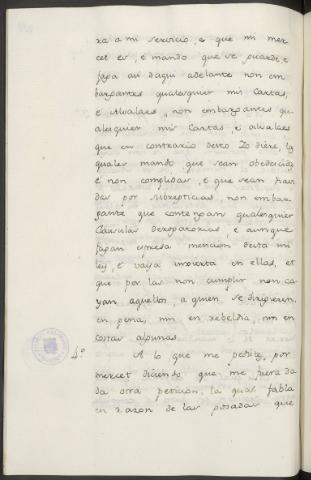 xa a mi servicio, e que mi mer
cet es, e mando que se guarde, e
faga asi daqui adelante non em
bargantes qualesquier mis Cartas,
e Alvalaes, non embargantes qua
lesquier mis Cartas, e alvalaes
que en contrario desto Yo diere, las
quales mando que sean obedecidas
e non complidas, e que sean havi
das por subrepticias, non embar
gante que contengan qualesquier
Clausulas Derogatorias, e aunque
fagan expresa mencion desta mi
ley, e vaya inserta en ellas, et
que por las non cumplir non ca
yan aquellos, a quien se dirigieren,
en pena, nin en rebeldia, nin en
costas algunas.
4º A lo que me pedistes, por
mercet diciendo que me fuera da
da otra peticion, la qual fabla
en razon de las posadas que